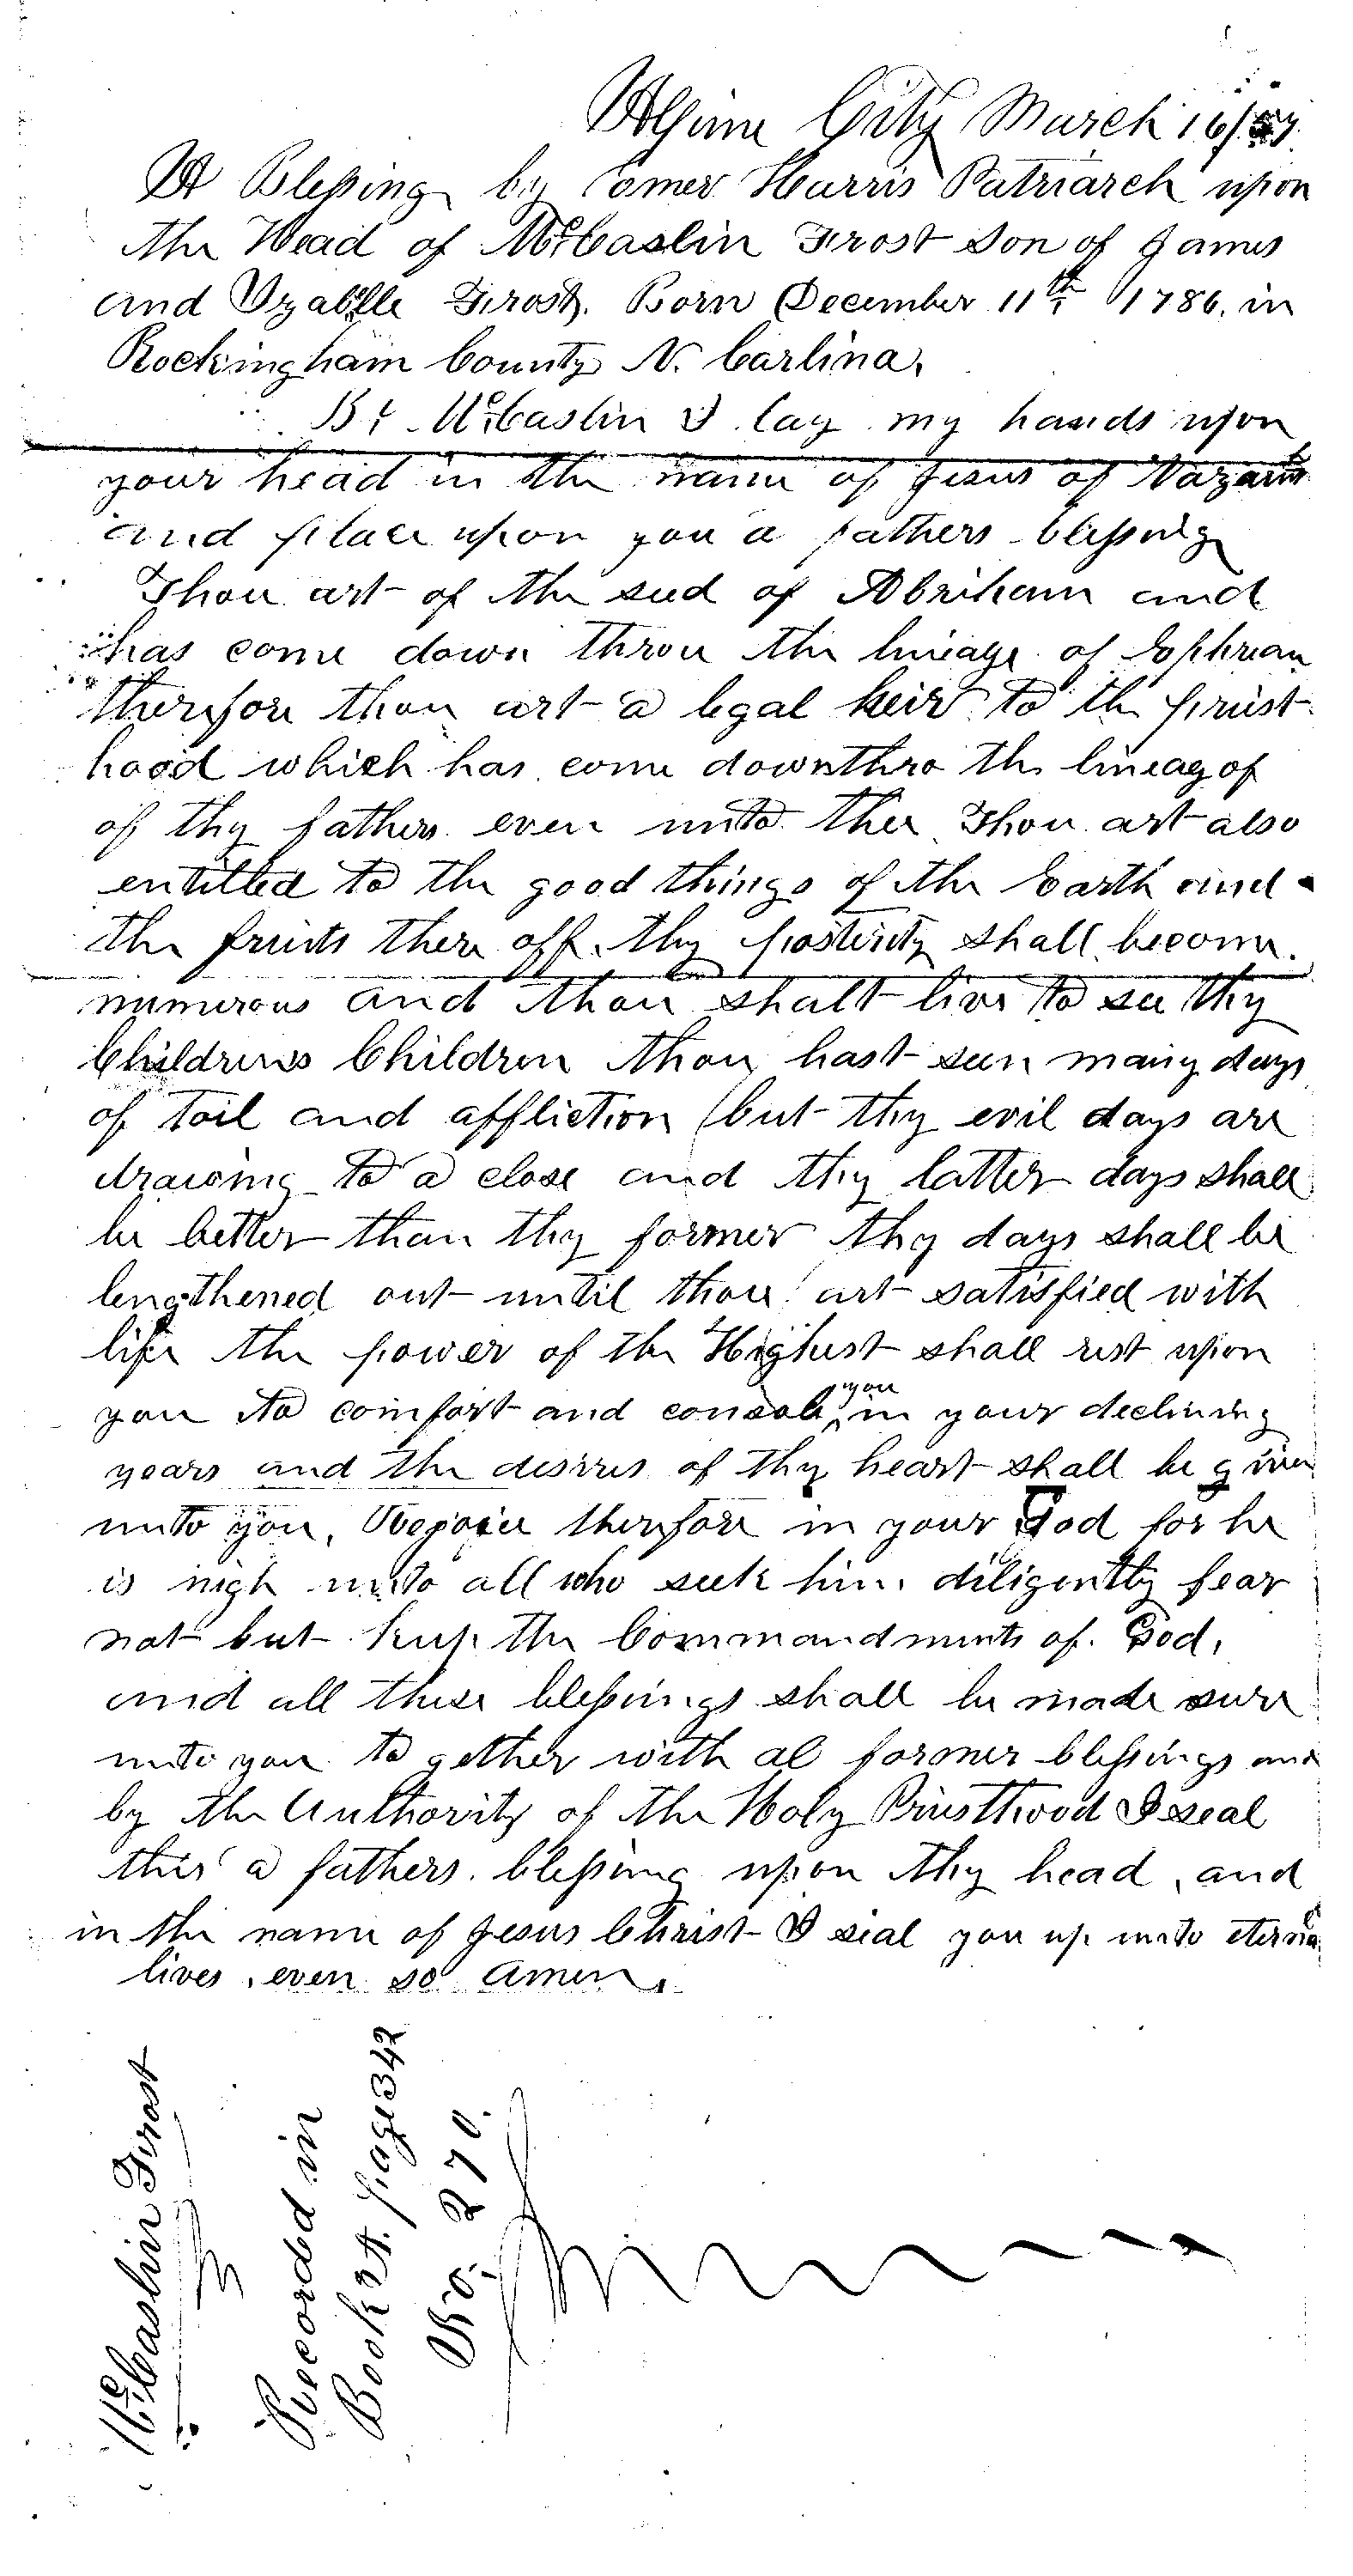 Alpine City March 16/57
A Blessing by Eomer Harris Patriarch upon
the Head of McCaslin Frost Son of James
and Yzabelle Frost. Born December 11th 1786, in
Rockingham County N. Carlina,
Br McCaslin I lay my hands upon
your head in the name of Jesus of Nazareth
and place upon you a fathers blessing
Thou art of the seed of Abriham and
has come down throu the lineage of Ephriam
therefore thou art a legal heir to the priest-
hood which has come down thro the lineag of
of thy fathers even unto thee Thou art also
entitled to the good things of the Earth and
the fruits there off. thy posterity shall become
numerous and thou shalt live to see thy
Childrens Children thou hast seen many days
of toil and affliction but thy evil days are
drawing to a close and thy latter days shall
be better than thy former thy days shall be
lengthened out until thou art satisfied with
life the power of the Highest shall rest upon
you to comfort and console you in your declining
years and the desires of thy heart shall be given
unto you, Rejoice therefore in your God for he
is nigh unto all who seek him diligently fear
not but keep the Commandments of God,
and all these blessings shall be made sure
unto you to gether with al former blessings and
by the Authority of the Holy Priesthood I seal
this a fathers blessing upon thy head, and
in the name of Jesus Christ I seal you up unto eternal
lives, even so Amen.
McCaslin Frost
Recorded in
Book A. page 342
No. 270.